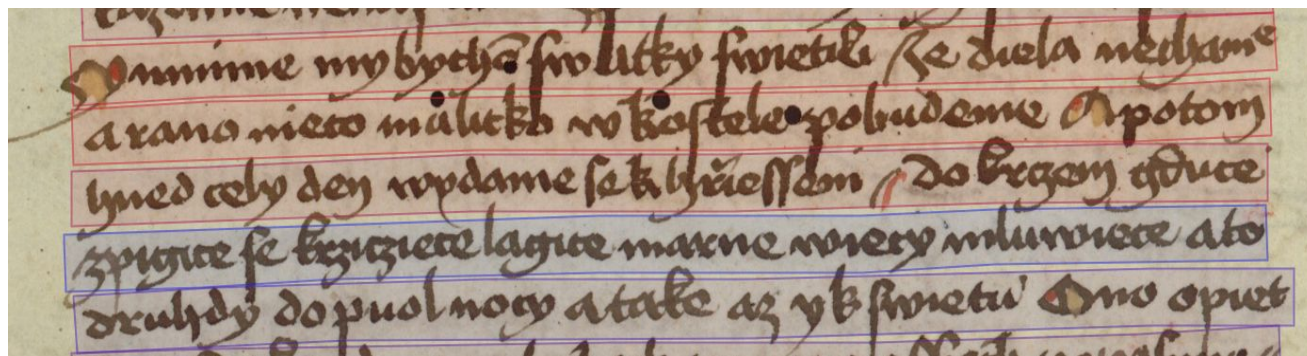 Mnnime mybychō swatky swietili / ze diela nechame
a rano nieco malitko w kostele pobudeme A potom
hned cely den wydame se k hrziessem / do krczem gducze
zpigice se krzicziece lagice marne wiecy mluwiece a to
druhdy do puol nocy a take az y k swietu Ono opiet